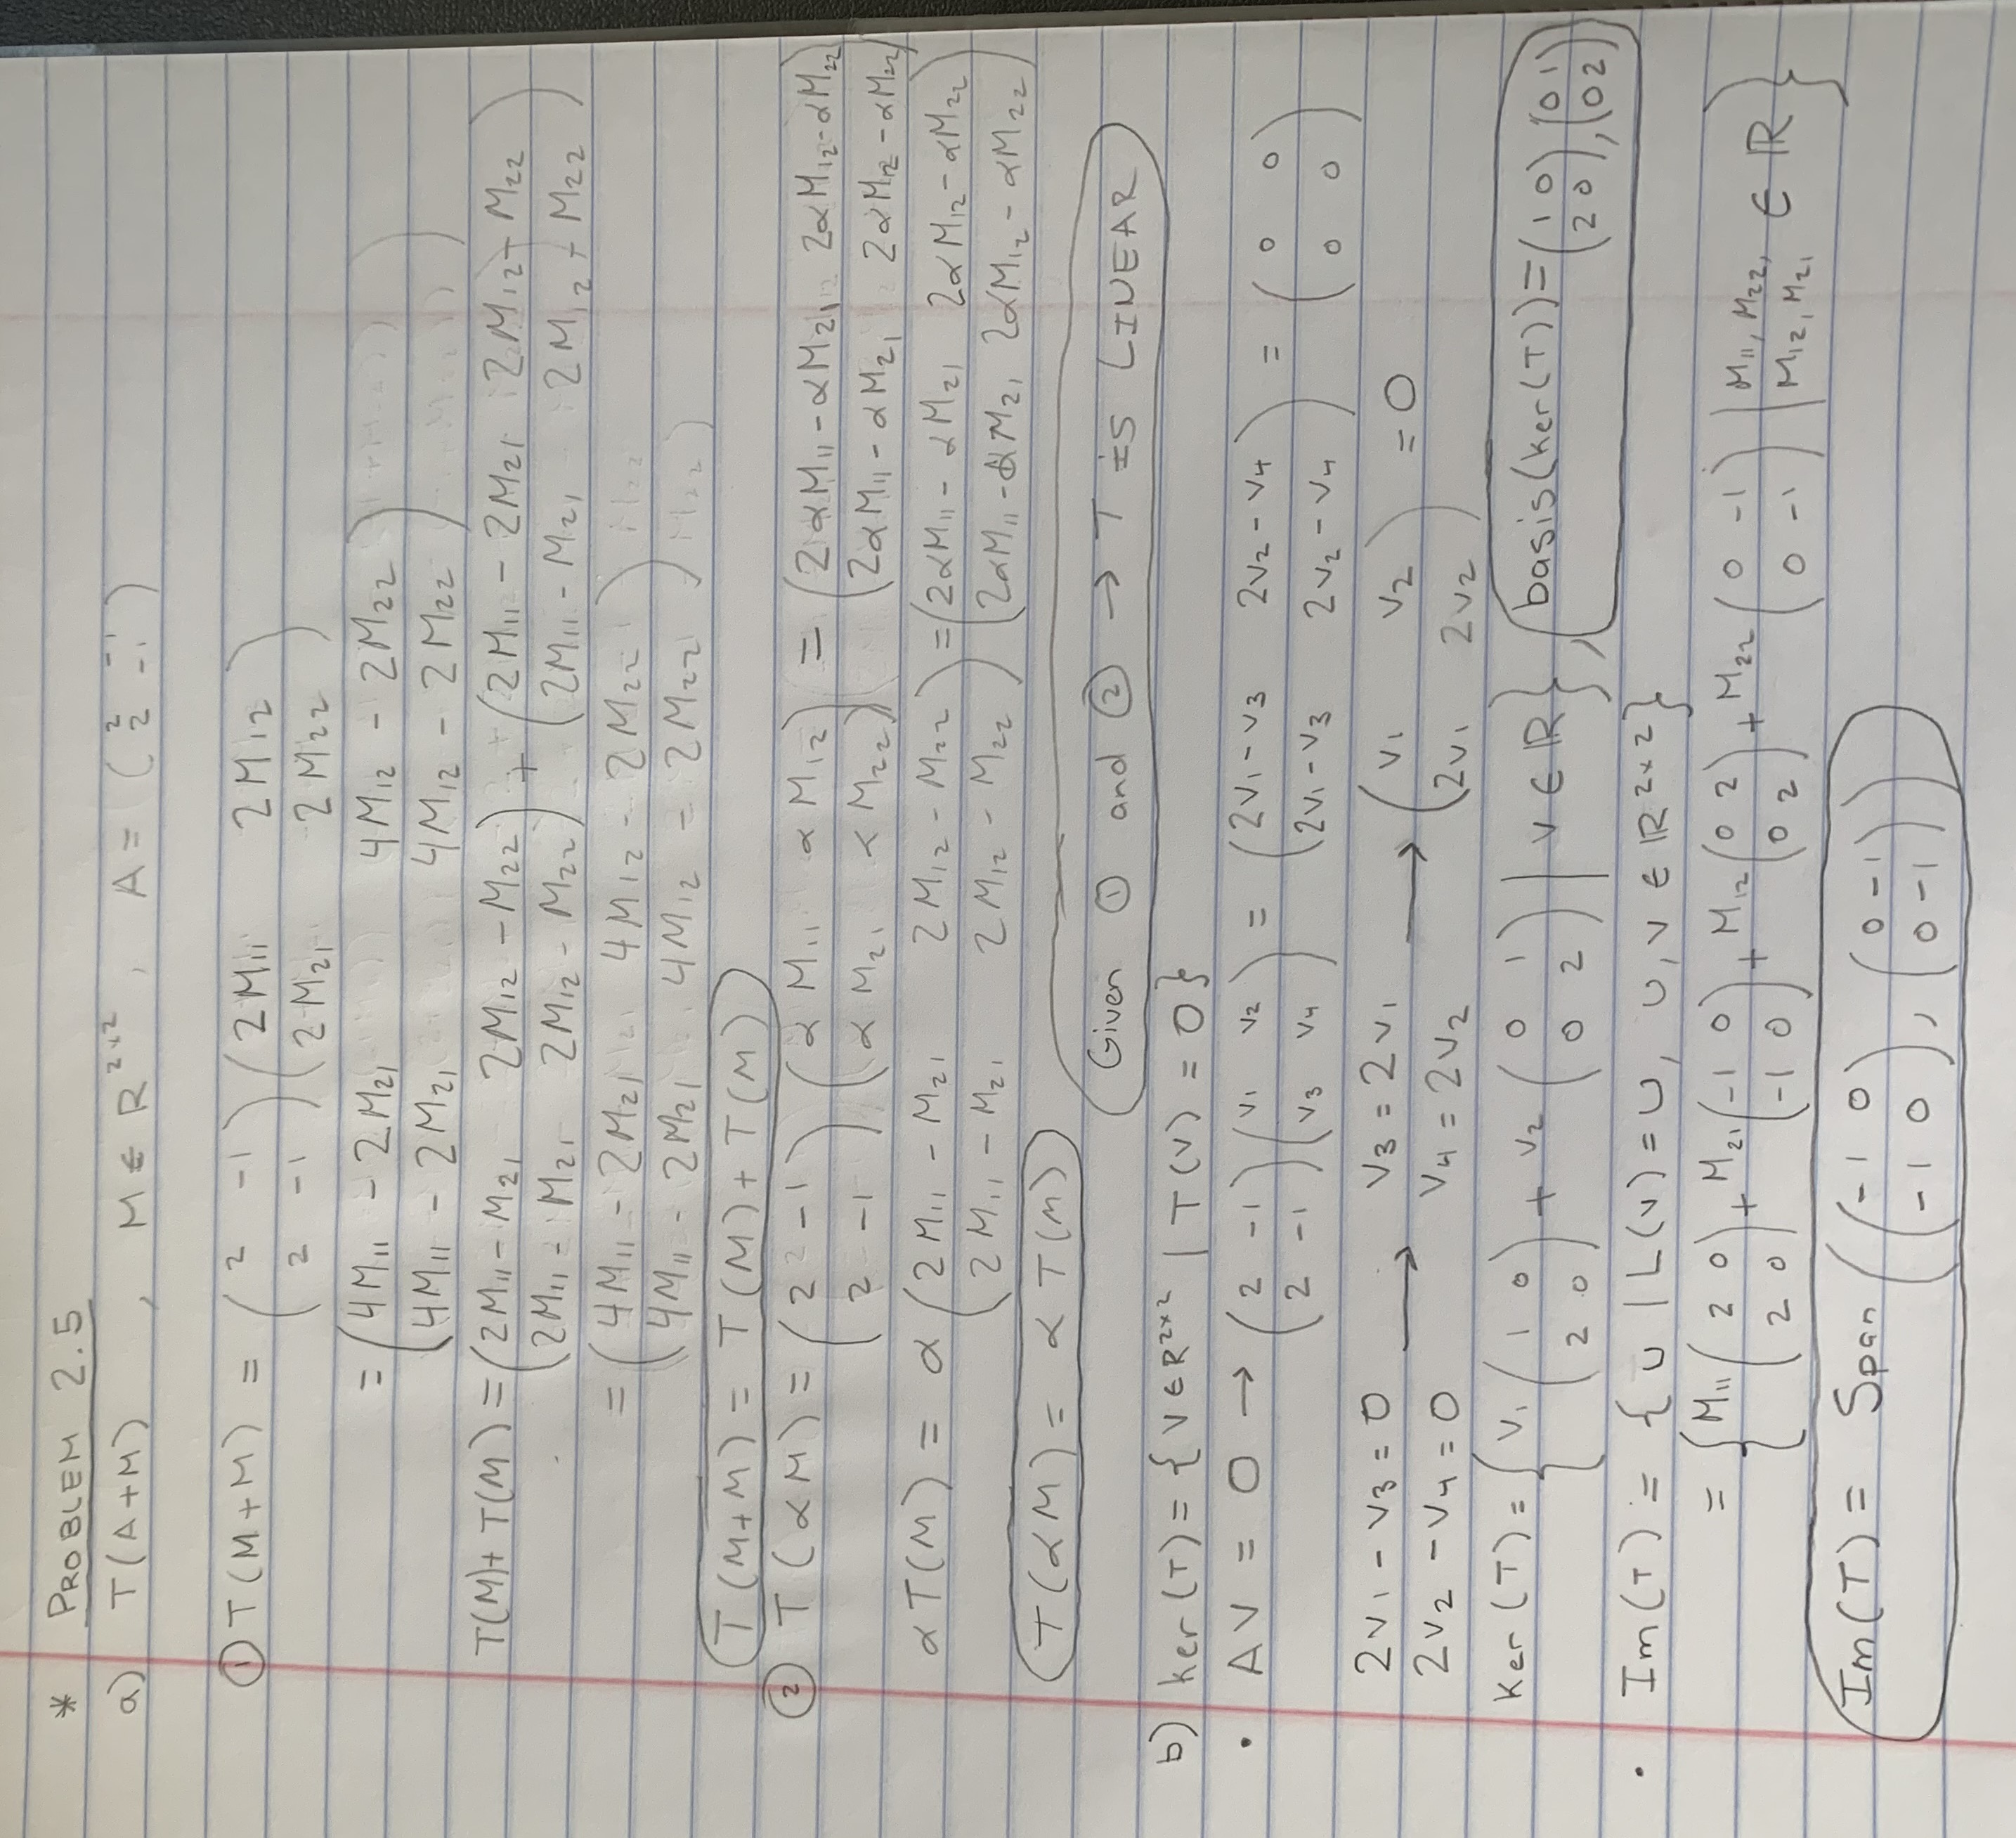 * PROBLEM 2.5
a) T(A+M) , M ∈ R^{2×2}, A = (2 -1; 2 -1)
① T(M+M) = (2 -1; 2 -1)(2M11 2M12; 2M21 2M22)
= (4M11 - 2M21 4M12 - 2M22; 4M11 - 2M21 4M12 - 2M22)
T(M)+T(M) = (2M11 - M21 2M12 - M22; 2M11 - M21 2M12 - M22) + (2M11 - 2M21 2M12 - M22; 2M11 - M21 2M12 - M22)
= (4M11 - 2M21 4M12 - 2M22; 4M11 - 2M21 4M12 - 2M22)
T(M+M) = T(M) + T(M)
② T(αM) = (2 -1; 2 -1)(αM11 αM12; αM21 αM22) = (2αM11 - αM21 2αM12 - αM22; 2αM11 - αM21 2αM12 - αM22)
αT(M) = α(2M11 - M21 2M12 - M22; 2M11 - M21 2M12 - M22) = (2αM11 - αM21 2αM12 - αM22; 2αM11 - αM21 2αM12 - αM22)
T(αM) = αT(M)
Given ① and ② → T is LINEAR
b) ker(T) = {V ∈ R^{2×2} | T(V) = 0}
• AV = 0 → (2 -1; 2 -1)(v1 v2; v3 v4) = (2v1 - v3 2v2 - v4; 2v1 - v3 2v2 - v4) = (0 0; 0 0)
2v1 - v3 = 0 → v3 = 2v1 → (v1 v2; 2v1 2v2) = 0
2v2 - v4 = 0 v4 = 2v2
Ker(T) = {v1(1 0; 2 0) + v2(0 1; 0 2) | v ∈ ℝ}, basis(ker(T)) = (1 0; 2 0), (0 1; 0 2)
• Im(T) = {U | L(v) = U, U,V ∈ ℝ^{2×2}}
= {M11(2 0; 2 0) + M21(-1 0; -1 0) + M12(0 2; 0 2) + M22(0 -1; 0 -1) | M11, M22, M12, M21 ∈ ℝ}
Im(T) = Span((-1 0; -1 0), (0 -1; 0 -1))